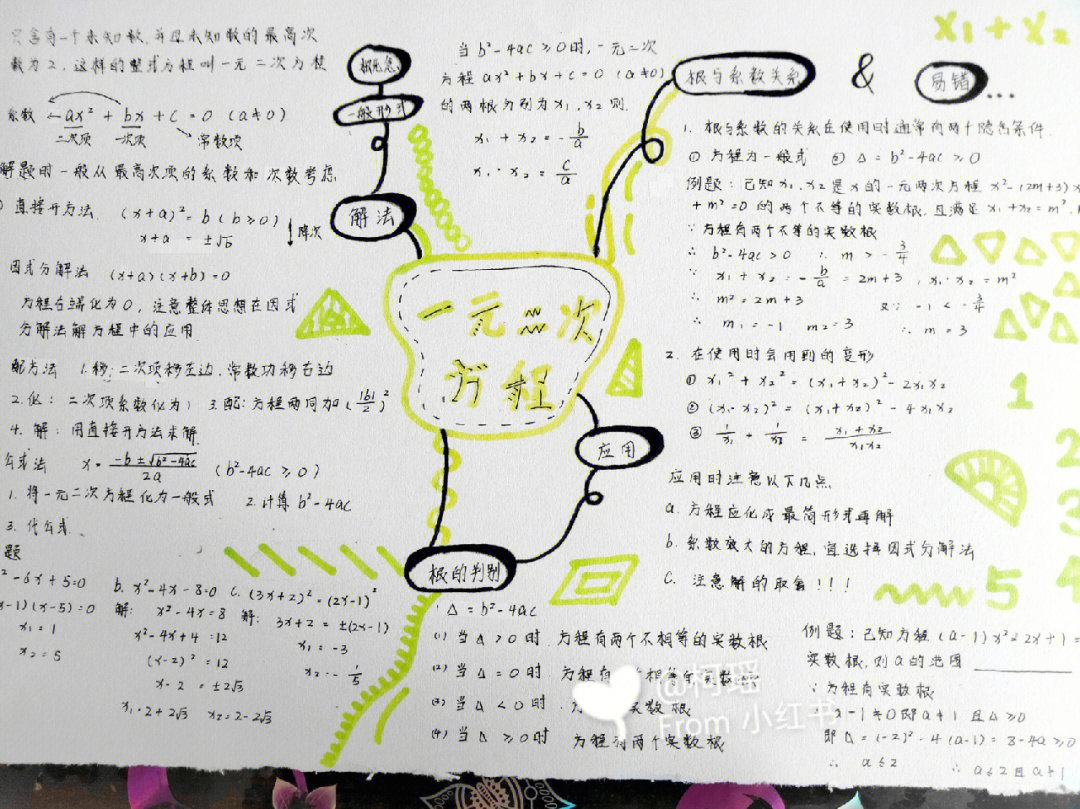 只含有一个未知数,并且未知数的最高次
数为2,这样的整式方程叫一元二次方程
系数 ax² + bx + c = 0 (a≠0)
二次项 一次项 常数项
解题时一般从最高次项的系数和次数考虑
直接开方法 (x+a)²=b (b≥0)
x+a = ±√b
降次
因式分解法 (x+a)(x+b)=0
方程右端化为0,注意整体思想在因式
分解法解方程中的应用
配方法 1.移:二次项移左边,常数项移右边
2.化:二次项系数化为1 3.配:方程两同加(|b|/2)²
4.解:用直接开方法求解
公式法 x=(-b±√b²-4ac)/2a (b²-4ac≥0)
1.将一元二次方程化为一般式 2.计算b²-4ac
3.代公式
题
²-6x+5=0
x-1)(x-5)=0
x₁=1
x₂=5
b. x²-4x-8=0
解: x²-4x=8
x²-4x+4=12
(x-2)²=12
x-2=±2√3
x₁=2+2√3 x₂=2-2√3
c. (3x+2)²=(2x-1)²
解: 3x+2=±(2x-1)
x₁=-3
x₂=-1/5
概念
一般形式
解法
一元二次
方程
当b²-4ac≥0时,一元二次
方程ax²+bx+c=0 (a≠0)
的两根分别为x₁,x₂则
x₁+x₂=-b/a
x₁·x₂=c/a
根与系数关系 & 易错...
x₁+x₂
1. 根与系数的关系在使用时通常有两个隐含条件
① 方程为一般式 ② Δ=b²-4ac≥0
例题:已知x₁,x₂是x的一元两次方程x²-(2m+3)x
+m²=0的两个不等的实数根,且满足x₁+x₂=m²,
∵方程有两个不等的实数根
∴ b²-4ac>0 ∴ m>-3/4
∵ x₁+x₂=-b/a=2m+3, x₁·x₂=m²
∴ m²=2m+3 又∵ -1<-3/4
∴ m₁=-1 m₂=3 ∴ m=3
2. 在使用时会用到的变形
① x₁²+x₂²=(x₁+x₂)²-2x₁x₂
② (x₁-x₂)²=(x₁+x₂)²-4x₁x₂
③ 1/x₁+1/x₂=(x₁+x₂)/x₁x₂
1
2
3
4
5
应用
应用时注意以下几点
a. 方程应化成最简形式再解
b. 系数较大的方程,宜选择因式分解法
C. 注意解的取舍!!!
根的判别
Δ=b²-4ac
(1) 当Δ>0时 方程有两个不相等的实数根
(2) 当Δ=0时 方程有
(3) 当Δ<0时 实数根
(4) 当Δ≥0时 方程有两个实数根
例题:已知方程(a-1)x²-2x+1=
实数根,则a的范围
∵方程有实数根
a-1≠0即a≠1且Δ≥0
即Δ=(-2)²-4(a-1)=8-4a≥0
∴ a≤2 ∴ a≤2且a≠1
@柯瑶
From 小红书